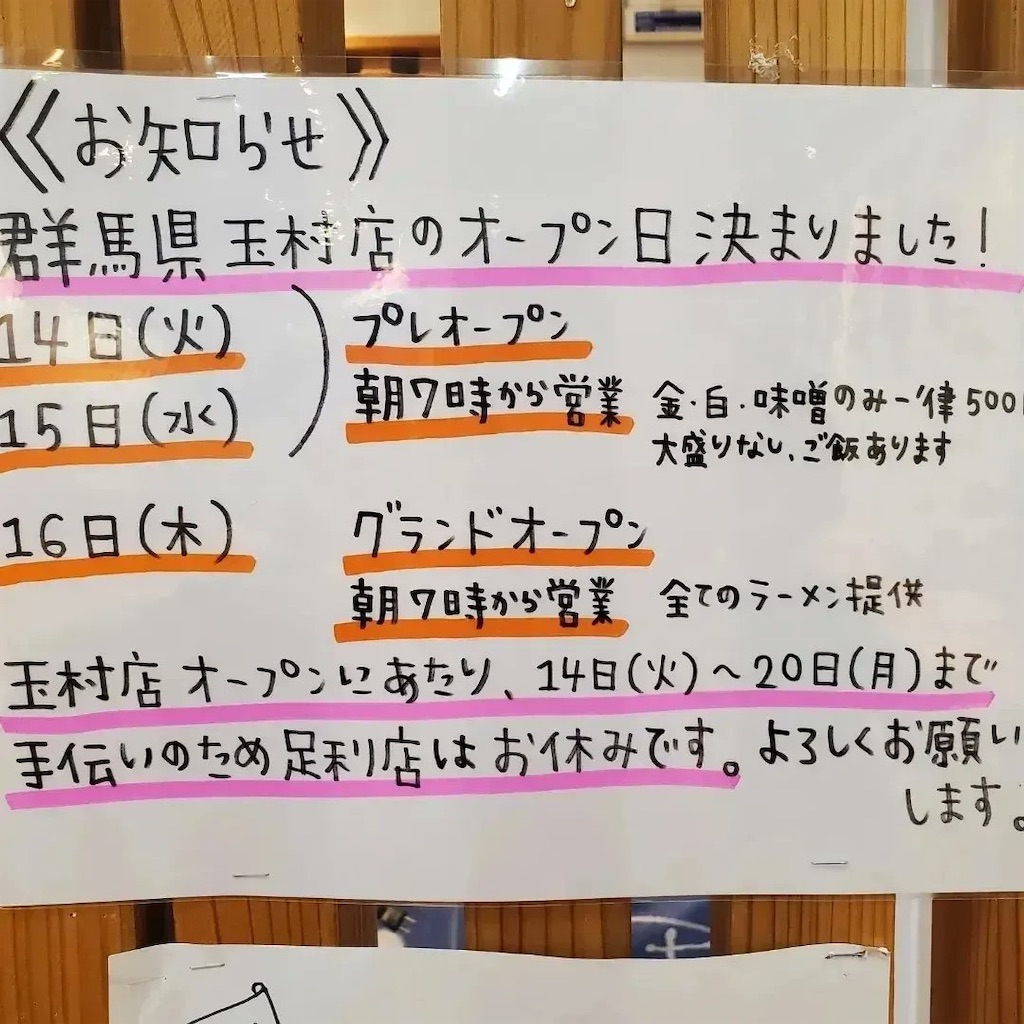 《お知らせ》
群馬県玉村店のオープン日決まりました!
14日(火)
15日(水)
プレオープン
朝7時から営業 金・白・味噌のみ一律500
大盛りなし、ご飯あります
16日(木) グランドオープン
朝7時から営業 全てのラーメン提供
玉村店オープンにあたり、14日(火)~20日(月)まで
手伝いのため足利店はお休みです。よろしくお願い
します。